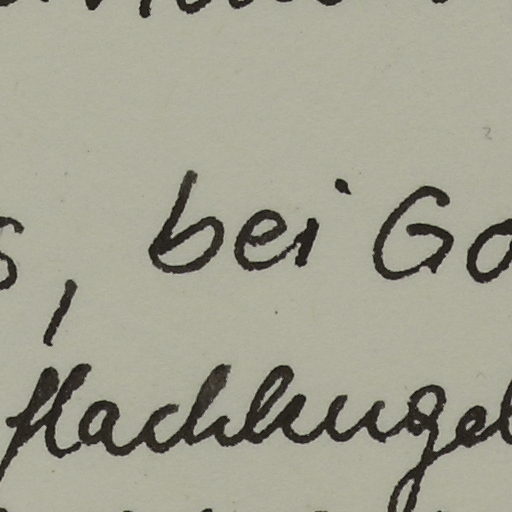 s, bei Go
flachkugel